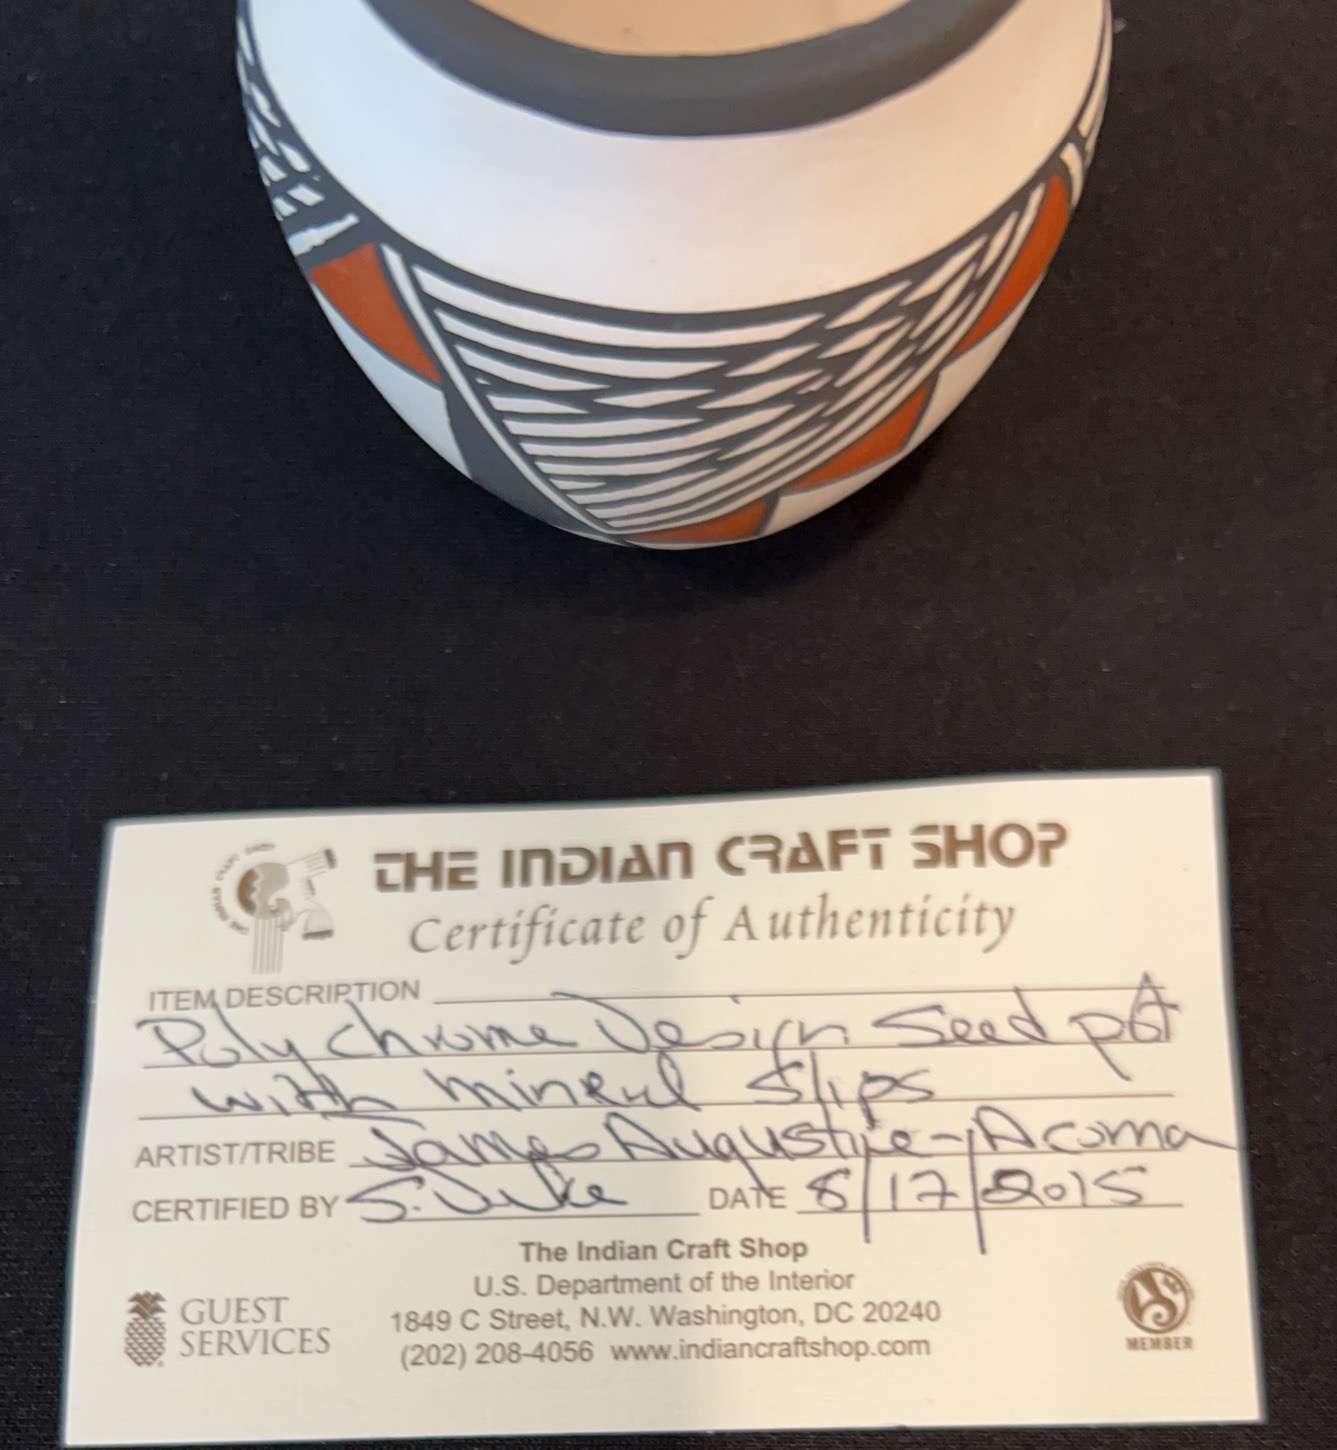 THE INDIAN CRAFT SHOP
Certificate of Authenticity
ITEM DESCRIPTION
Polychrome Design Seed pot
with mineral slips
ARTIST/TRIBE James Augustine-Acoma
CERTIFIED BY S. DATE 8/17/2015
The Indian Craft Shop
U.S. Department of the Interior
1849 C Street, N.W. Washington, DC 20240
(202) 208-4056 www.indiancraftshop.com
GUEST
SERVICES
MEMBER